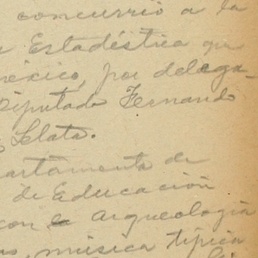 concurrió a la
Estadéstica que
méxico, por delega-
Diputado Fernando
Lelata.
artamento de
de Educación
con e arqueología
música típica